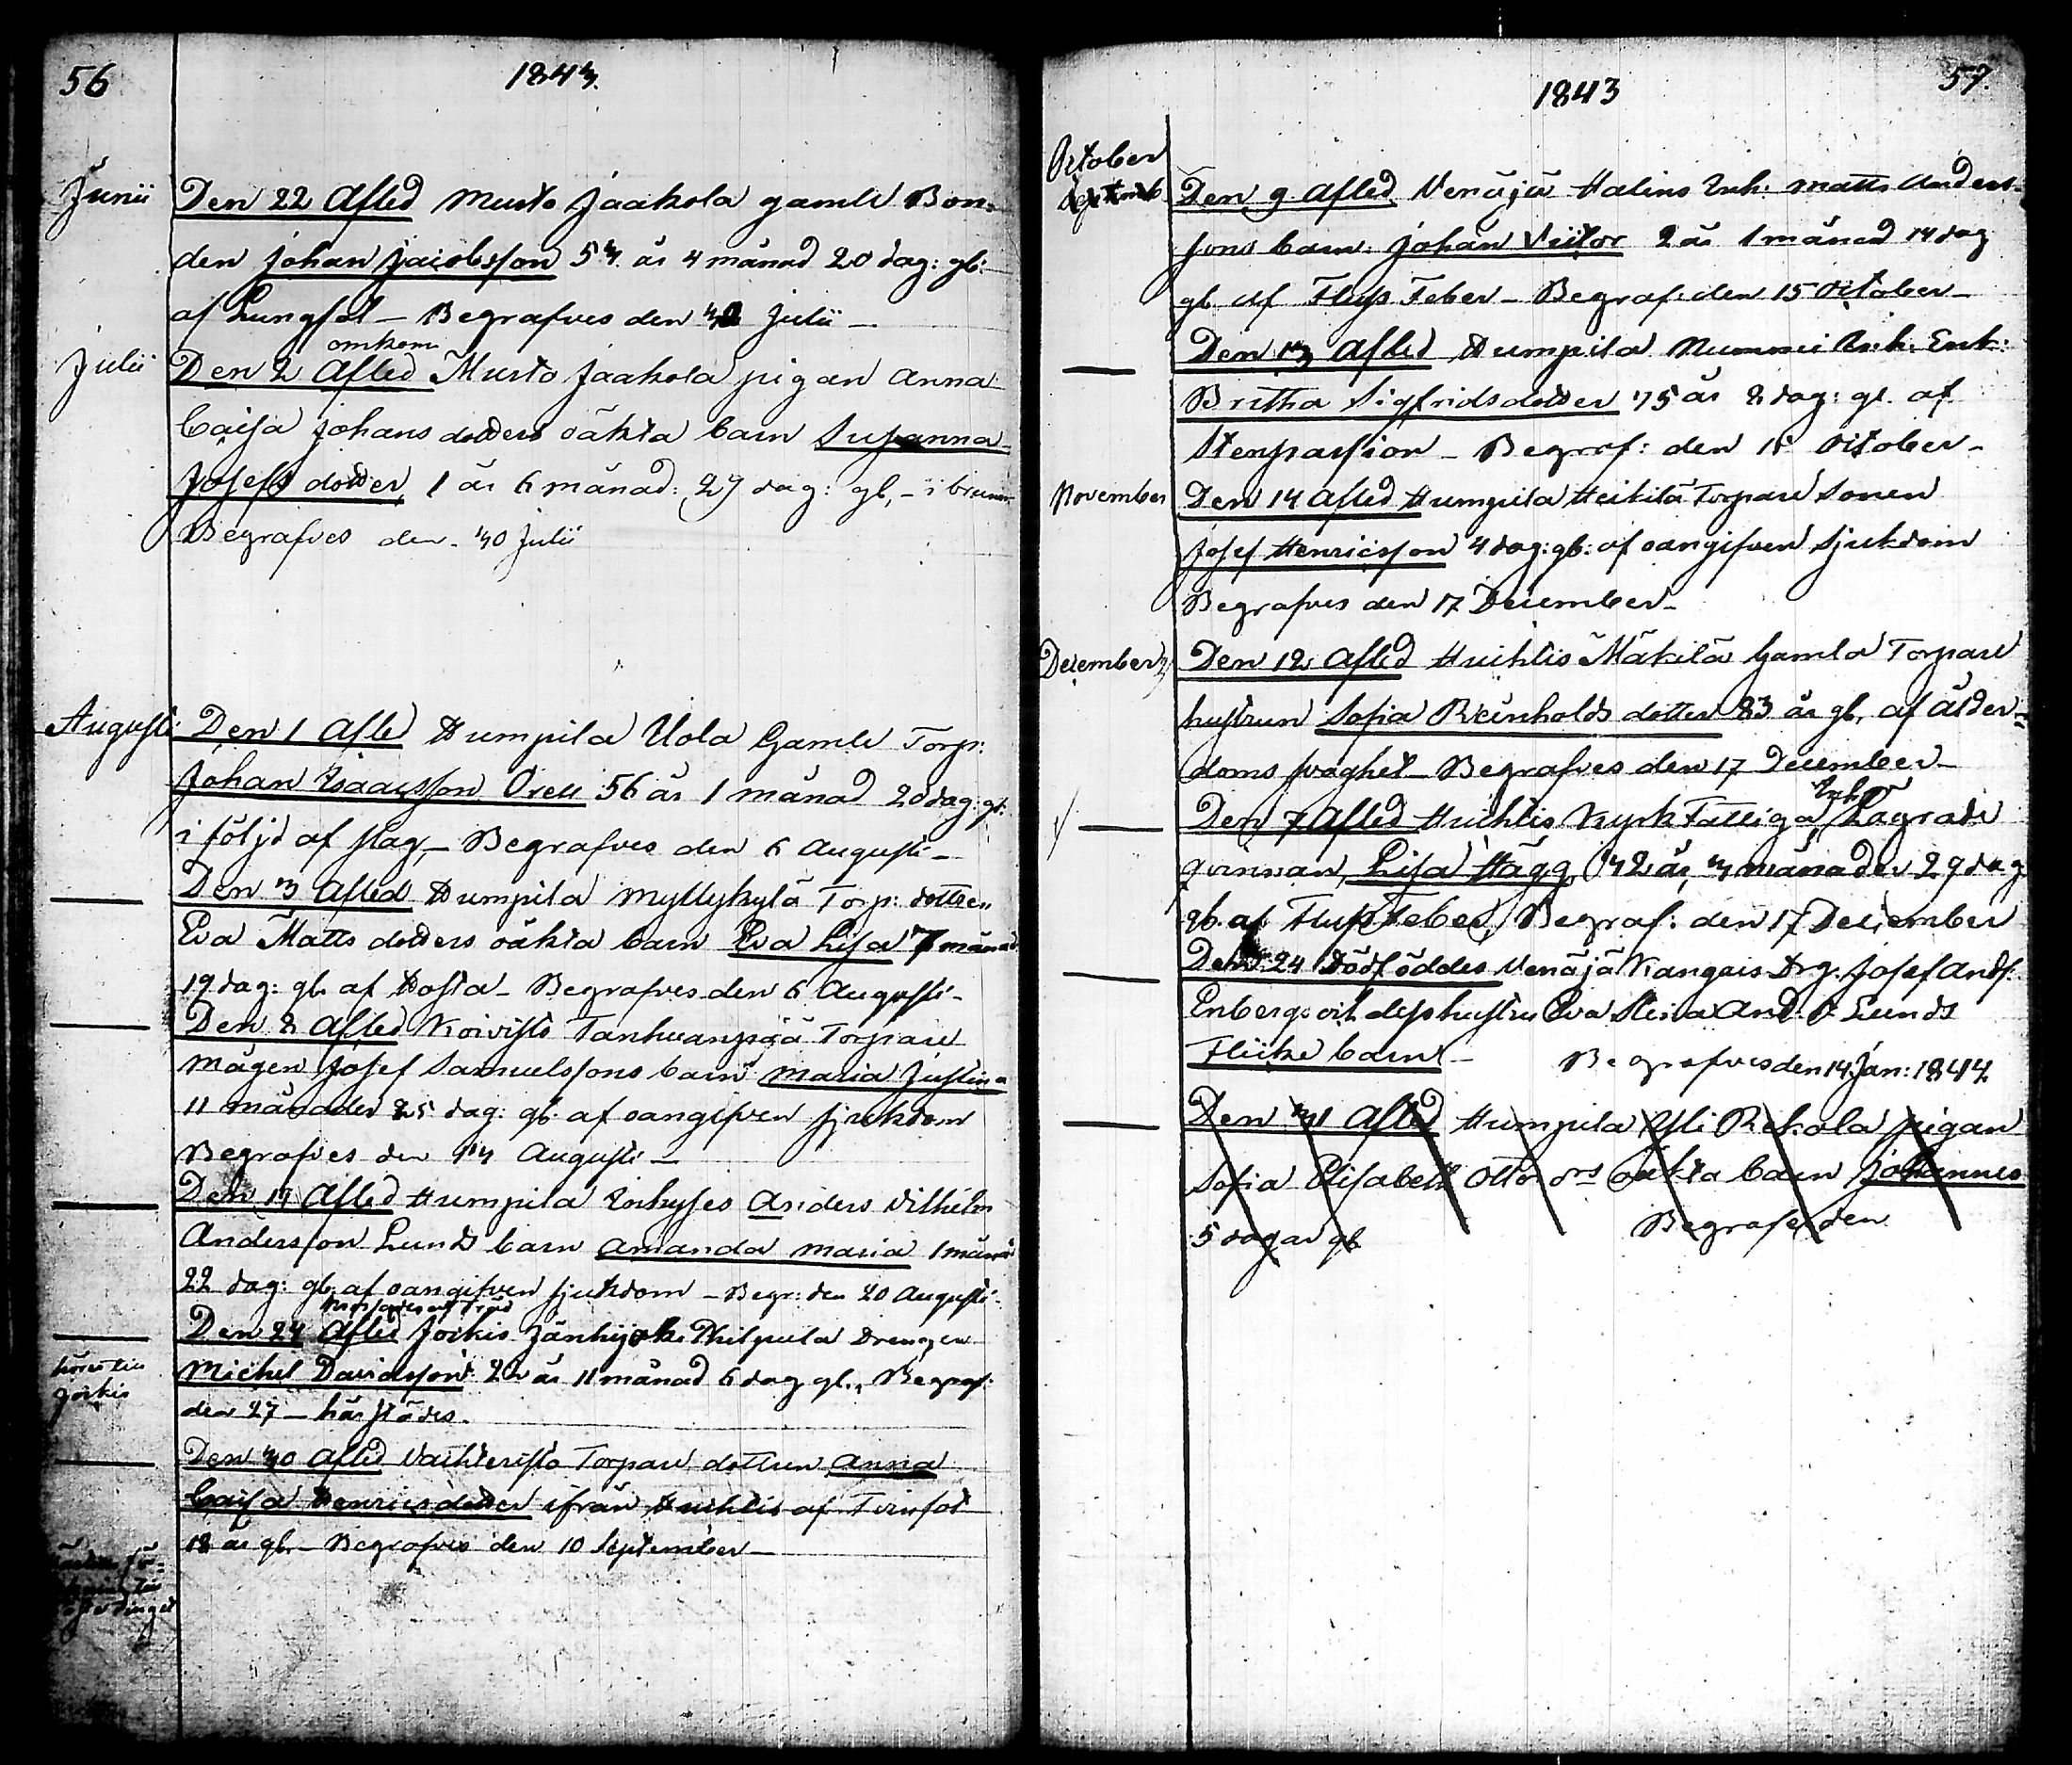 56
1843.
Junii
Den 22 Afled Musto Jaakola gamle Bon-
den Johan Jacobsson 53 år 4 månad 20 dag: gl:
af Lungsot – Begrafves den 2 Julii –
omkom
Julii
Den 2 Afled Musto Jaakola pigan Anna
Caisa Johans dotters oäkta barn Susanna
Josefs dotter, 1 år 6 månad: 29 dag: gl, – i brunn
Begrafves den 30 Julii
Augusti
Den 1 Afled Humpila Uola Gamle Torp:
Johan Isaacsson Orell 56 år 1 månad 20 dag: gl:
i följd af slag, – Begrafves den 6 Augusti –
Den 3 Afled Humpila Myllykylä Torp: dottren
Eva Matts dotters oäkta barn Eva Lisa 7 månad
19 dag: gl. af Hosta – Begrafves den 6 Augusti –
Den 2 Afled Koivisto Tanhuanpää Torpare
mågen Josef Samuelssons barn Maria Justina
11 månader 25 dag: gl. af oangifven sjukdom
Begrafves den 13 Augusti –
Den 17 Afled Humpila Inhyses Anders Vilhelm
Andersson Lunds barn Amanda Maria 1 månad
22 dag: gl. af oangifven sjukdom – Begr: den 20 Augusti –
Den 24 Afled Jockis Jänhijoki Philpula Drengen
hörer till
Jockis
Michel Davidsson 22 år 11 månad 6 dag gl., Begraf:
den 27 – härstädes.
Den 30 Afled Vaihteristo Torpare dottren Anna
Caisa Henricsdotter ifrån Huhtis af Tvinsot
18 år gl. – Begrafves den 10 September –
57.
1843
October
Den 9 Afled Venäjä Halins Inh: Matts Anders-
sons barn: Johan Victor 2 år 1 månad 14 dag
gl. af Fluss Feber – Begraf. den 15 October –
Den 13 Afled Humpila Nummi Inh. Enk:
Britha Sigfridsdotter 75 år 2 dag: gl. af
Stenpassion – Begraf: den 15 October –
November
Den 14 Afled Humpila Heikilä Torpare Sonen
Josef Henricsson 4 dag: gl: af oangifven Sjukdom
Begrafves den 17 December –
December
Den 12 Afled Huhtis Mäkilä Gamla Torpare
hustrun Sofia Reinholds dotter 83 år gl, af ålder-
doms svaghet – Begrafves den 17 December –
Den 7 Afled Huhtis Kyrk Fattiga,
qvinnan, Lisa Hägg, 42 år, 3 månader 29 dag
gl. af Fluss Feber, Begraf: den 17 December
Den 24 Dödföddes Venäjä Kangais Drg. Josef Ands.
Enbergs och dess hustru Eva Stina And. d. Lunds
Flicke barn –
Begrafves den 14 Jan: 1844.
Den 31 Afled Humpila Yli Rekola pigan
Sofia Elisabeth Otto drs oäkta barn Johannes
5 dagar gl.
Begrafves den